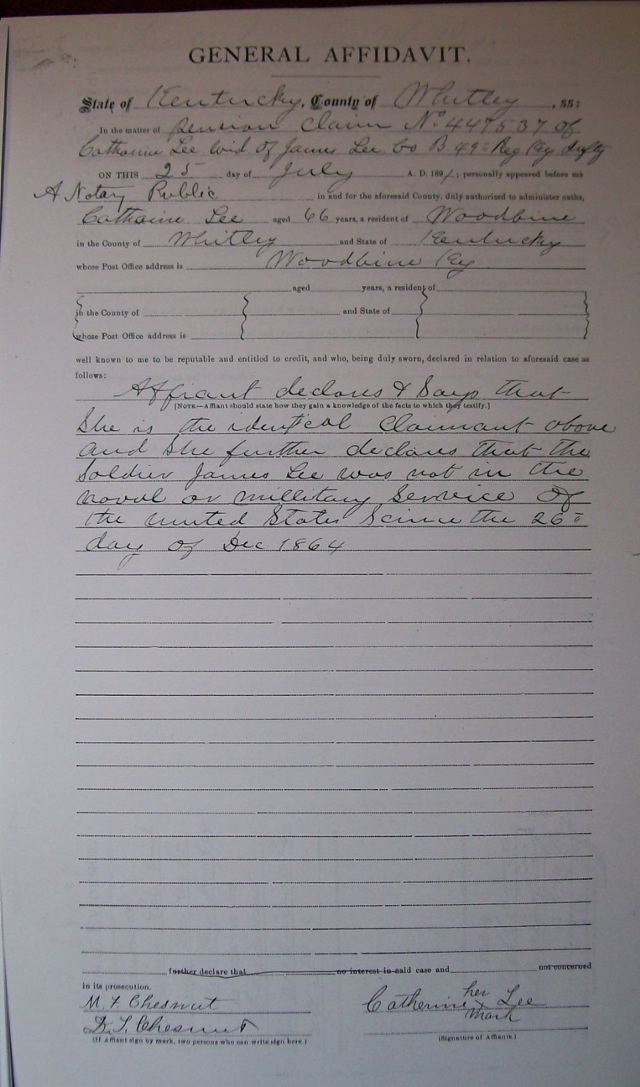 GENERAL AFFIDAVIT.
State of Kentucky, County of Whitley, ss:
In the matter of pension claim No 447537 of
Catharine Lee wid of James Lee Co B 49" Reg Ky Infty
ON THIS 25 day of July A. D. 1891; personally appeared before me
A Notary Public in and for the aforesaid County, duly authorized to administer oaths,
Catharine Lee aged 66 years, a resident of Woodbine
in the County of Whitley and State of Kentucky
whose Post Office address is Woodbine Ky
aged years, a resident of
in the County of and State of
whose Post Office address is
well known to me to be reputable and entitled to credit, and who, being duly sworn, declared in relation to aforesaid case as
follows:
Affiant declares & Says that
[NOTE.—Affiant should state how they gain a knowledge of the facts to which they testify.]
She is the identical Claimant above
and she further declares that the
Soldier James Lee was not in the
naval or millitary Service of
the united States Scince the 26"
day of Dec 1864
further declare that no interest in said case and not concerned
in its prosecution.
M F Chesnut
D. L. Chesnut
(If Affiant sign by mark, two persons who can write sign here.)
her
Catherine x Lee
mark
(Signature of Affiants.)